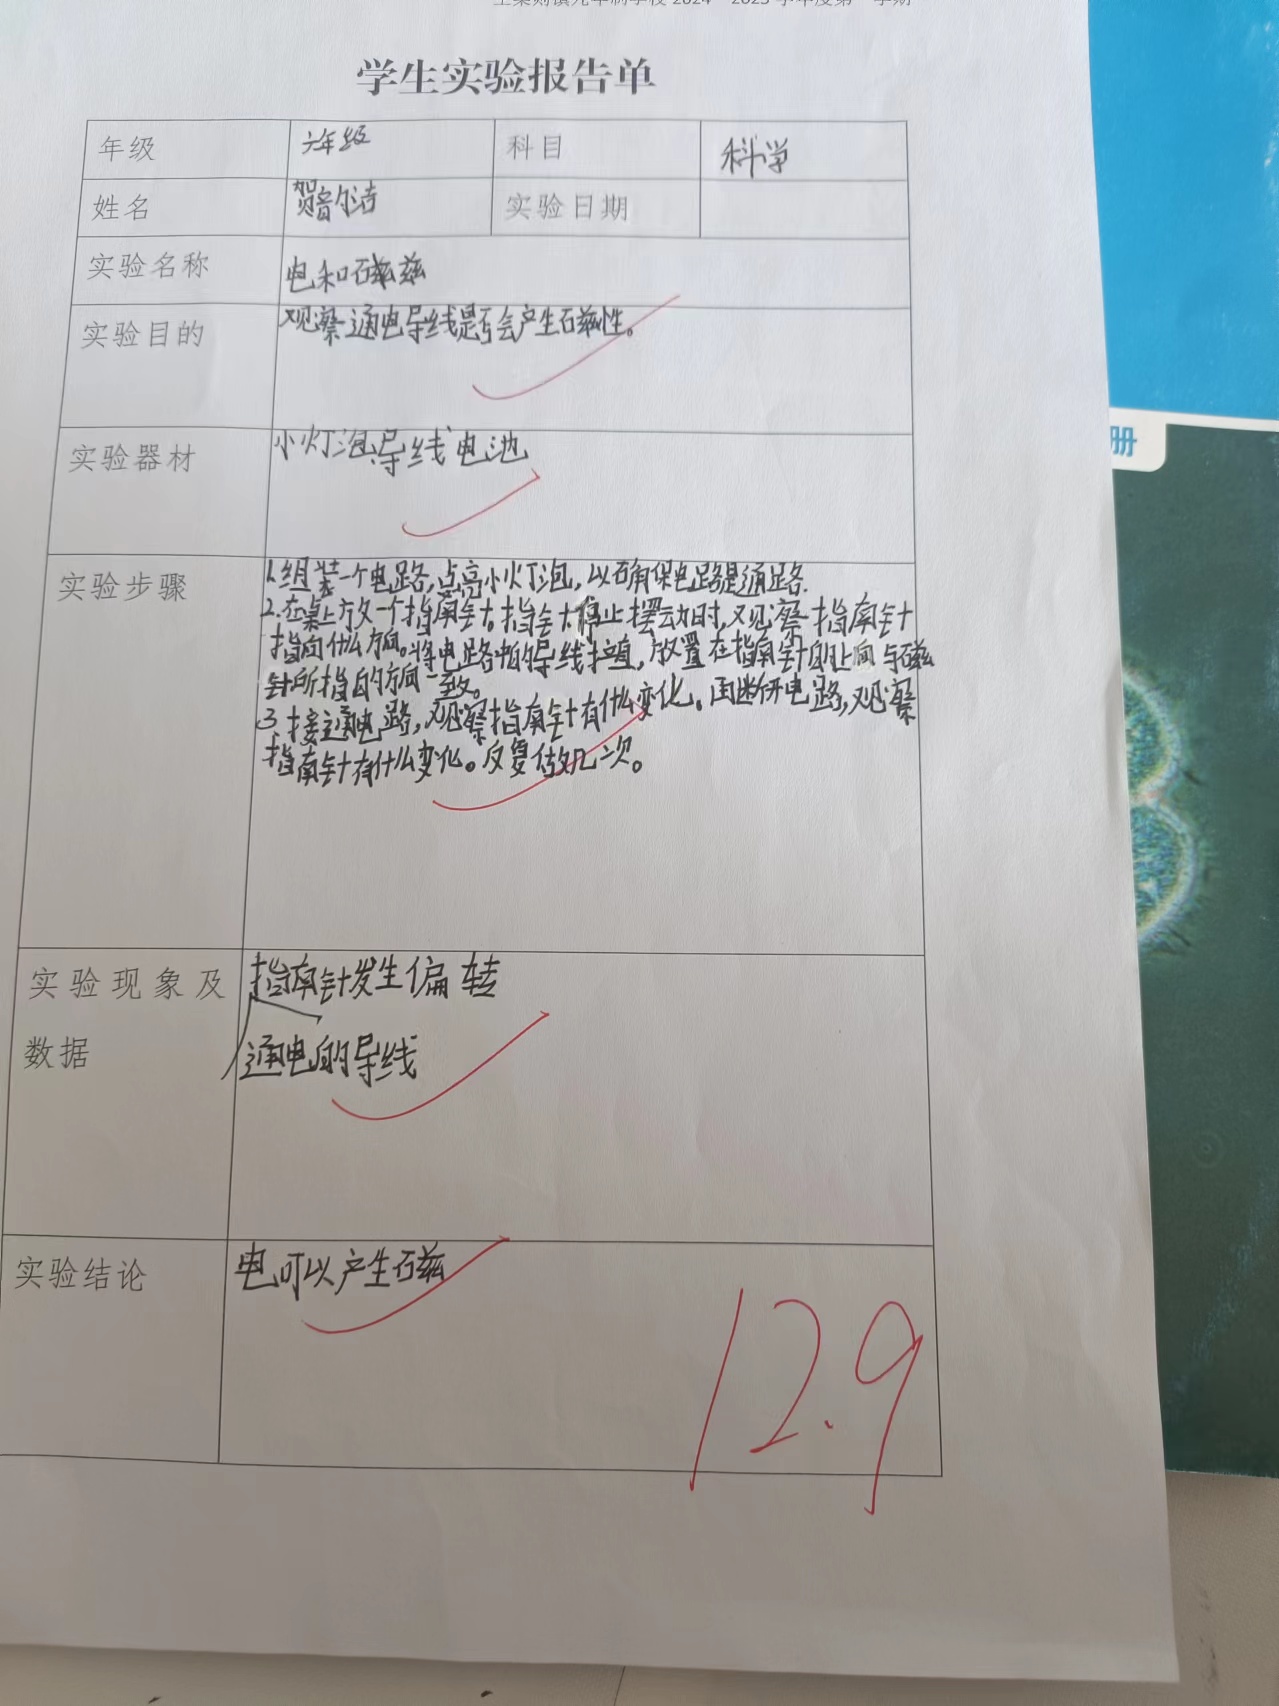 学年度第一学期
学生实验报告单
年级 六年级 科目 科学
姓名 实验日期
实验名称 电和磁
实验目的 观察通电导线是否会产生磁性。
实验器材 小灯泡导线电池
实验步骤 1.组装一个电路,点亮小灯泡,以确保电路是通路.
2.在桌上放一个指南针。指针停止摆动时,观察指南针
指向什么方向。将电路中的导线拉直,放置在指南针的上面与磁
针所指的方向一致。
3.接通电路,观察指南针有什么变化。再断开电路,观察
指南针有什么变化。反复做几次。
实验现象及 指南针发生偏转
数据 通电的导线
实验结论 电可以产生磁
12.9
册